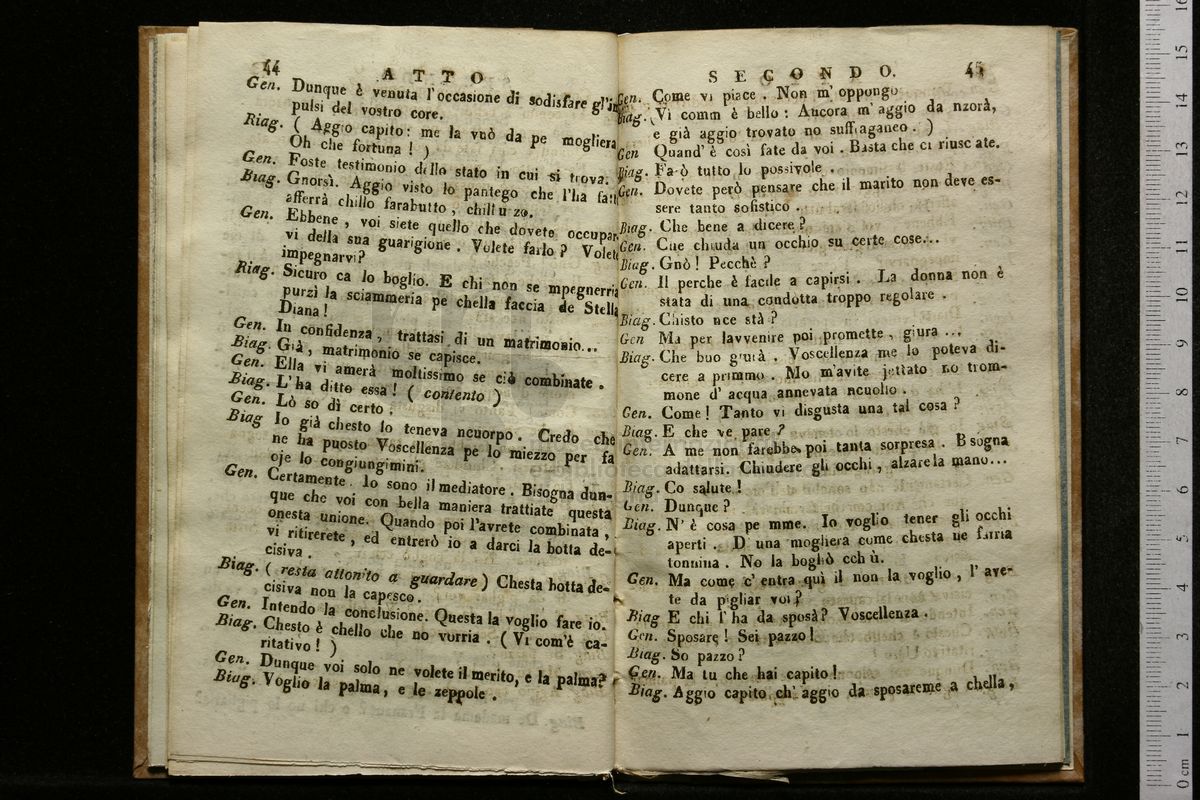 44
ATTO
Gen. Dunque è venuta l'occasione di sodisfare gl'im
pulsi del vostro core.
Biag. ( Aggio capito: me la vuò da pe mogliera
Oh che fortuna ! )
Gen. Foste testimonio dello stato in cui si trova.
Biag. Gnorsì. Aggio visto lo pantego che l'ha fatt
afferrà chillo farabutto, chill'u zo.
Gen. Ebbene, voi siete quello che dovete occupar
vi della sua guarigione. Volete farlo? Volete
impegnarvi?
Biag. Sicuro ca lo boglio. E chi non se mpegnerria
purzì la sciammeria pe chella faccia de Stella
Diana!
Gen. In confidenza, trattasi di un matrimonio...
Biag. Già, matrimonio se capisce.
Gen. Ella vi amerà moltissimo se ciò combinate.
Biag. L'ha ditto essa! ( contento )
Gen. Lò so dì certo.
Biag Io già chesto lo teneva ncuorpo. Credo che
ne ha puosto Voscellenza pe lo miezzo per fa
oje lo congiungimini.
Gen. Certamente. Io sono il mediatore. Bisogna dun-
que che voi con bella maniera trattiate questa
onesta unione. Quando poi l'avrete combinata,
vi ritirerete, ed entrerò io a darci la botta de-
cisiva.
Biag. ( resta attonito a guardare ) Chesta botta de-
cisiva non la capesco.
Gen. Intendo la conclusione. Questa la voglio fare io.
Biag. Chesto è chello che no vurria. ( Vi com'è ca-
ritativo! )
Gen. Dunque voi solo ne volete il merito, e la palma?
Biag. Voglio la palma, e le zeppole.
SECONDO.
45
Gen. Come vi piace. Non m' oppongo
Biag. (Vi comm è bello: Ancora m' aggio da nzorà,
e già aggio trovato no suffraganeo. )
Gen Quand' è così fate da voi. Basta che ci riusciate.
Biag. Farò tutto lo possivole.
Gen. Dovete però pensare che il marito non deve es-
sere tanto sofistico.
Biag. Che bene a dicere?
Gen. Che chiuda un occhio su certe cose...
Biag. Gnò! Pecchè?
Gen. Il perche è facile a capirsi. La donna non è
stata di una condotta troppo regolare.
Biag. Chisto nce stà?
Gen Ma per lavvenire poi promette, giura ...
Biag. Che buo giurà. Voscellenza me lo poteva di-
cere a primmo. Mo m'avite jettato no trom-
mone d' acqua annevata ncuollo.
Gen. Come! Tanto vi disgusta una tal cosa?
Biag. E che ve pare?
Gen. A me non farebbe poi tanta sorpresa. Bisogna
adattarsi. Chiudere gli occhi, alzare la mano...
Biag. Co salute!
Gen. Dunque?
Biag. N' è cosa pe mme. Io voglio tener gli occhi
aperti. D' una mogliera come chesta ne farria
tonnina. No la bogliò cchiù.
Gen. Ma come c' entra quì il non la voglio, l' ave-
te da pigliar voi?
Biag E chi l' ha da sposà? Voscellenza.
Gen. Sposare! Sei pazzo!
Biag. So pazzo?
Gen. Ma tu che hai capito!
Biag. Aggio capito ch' aggio da sposareme a chella,